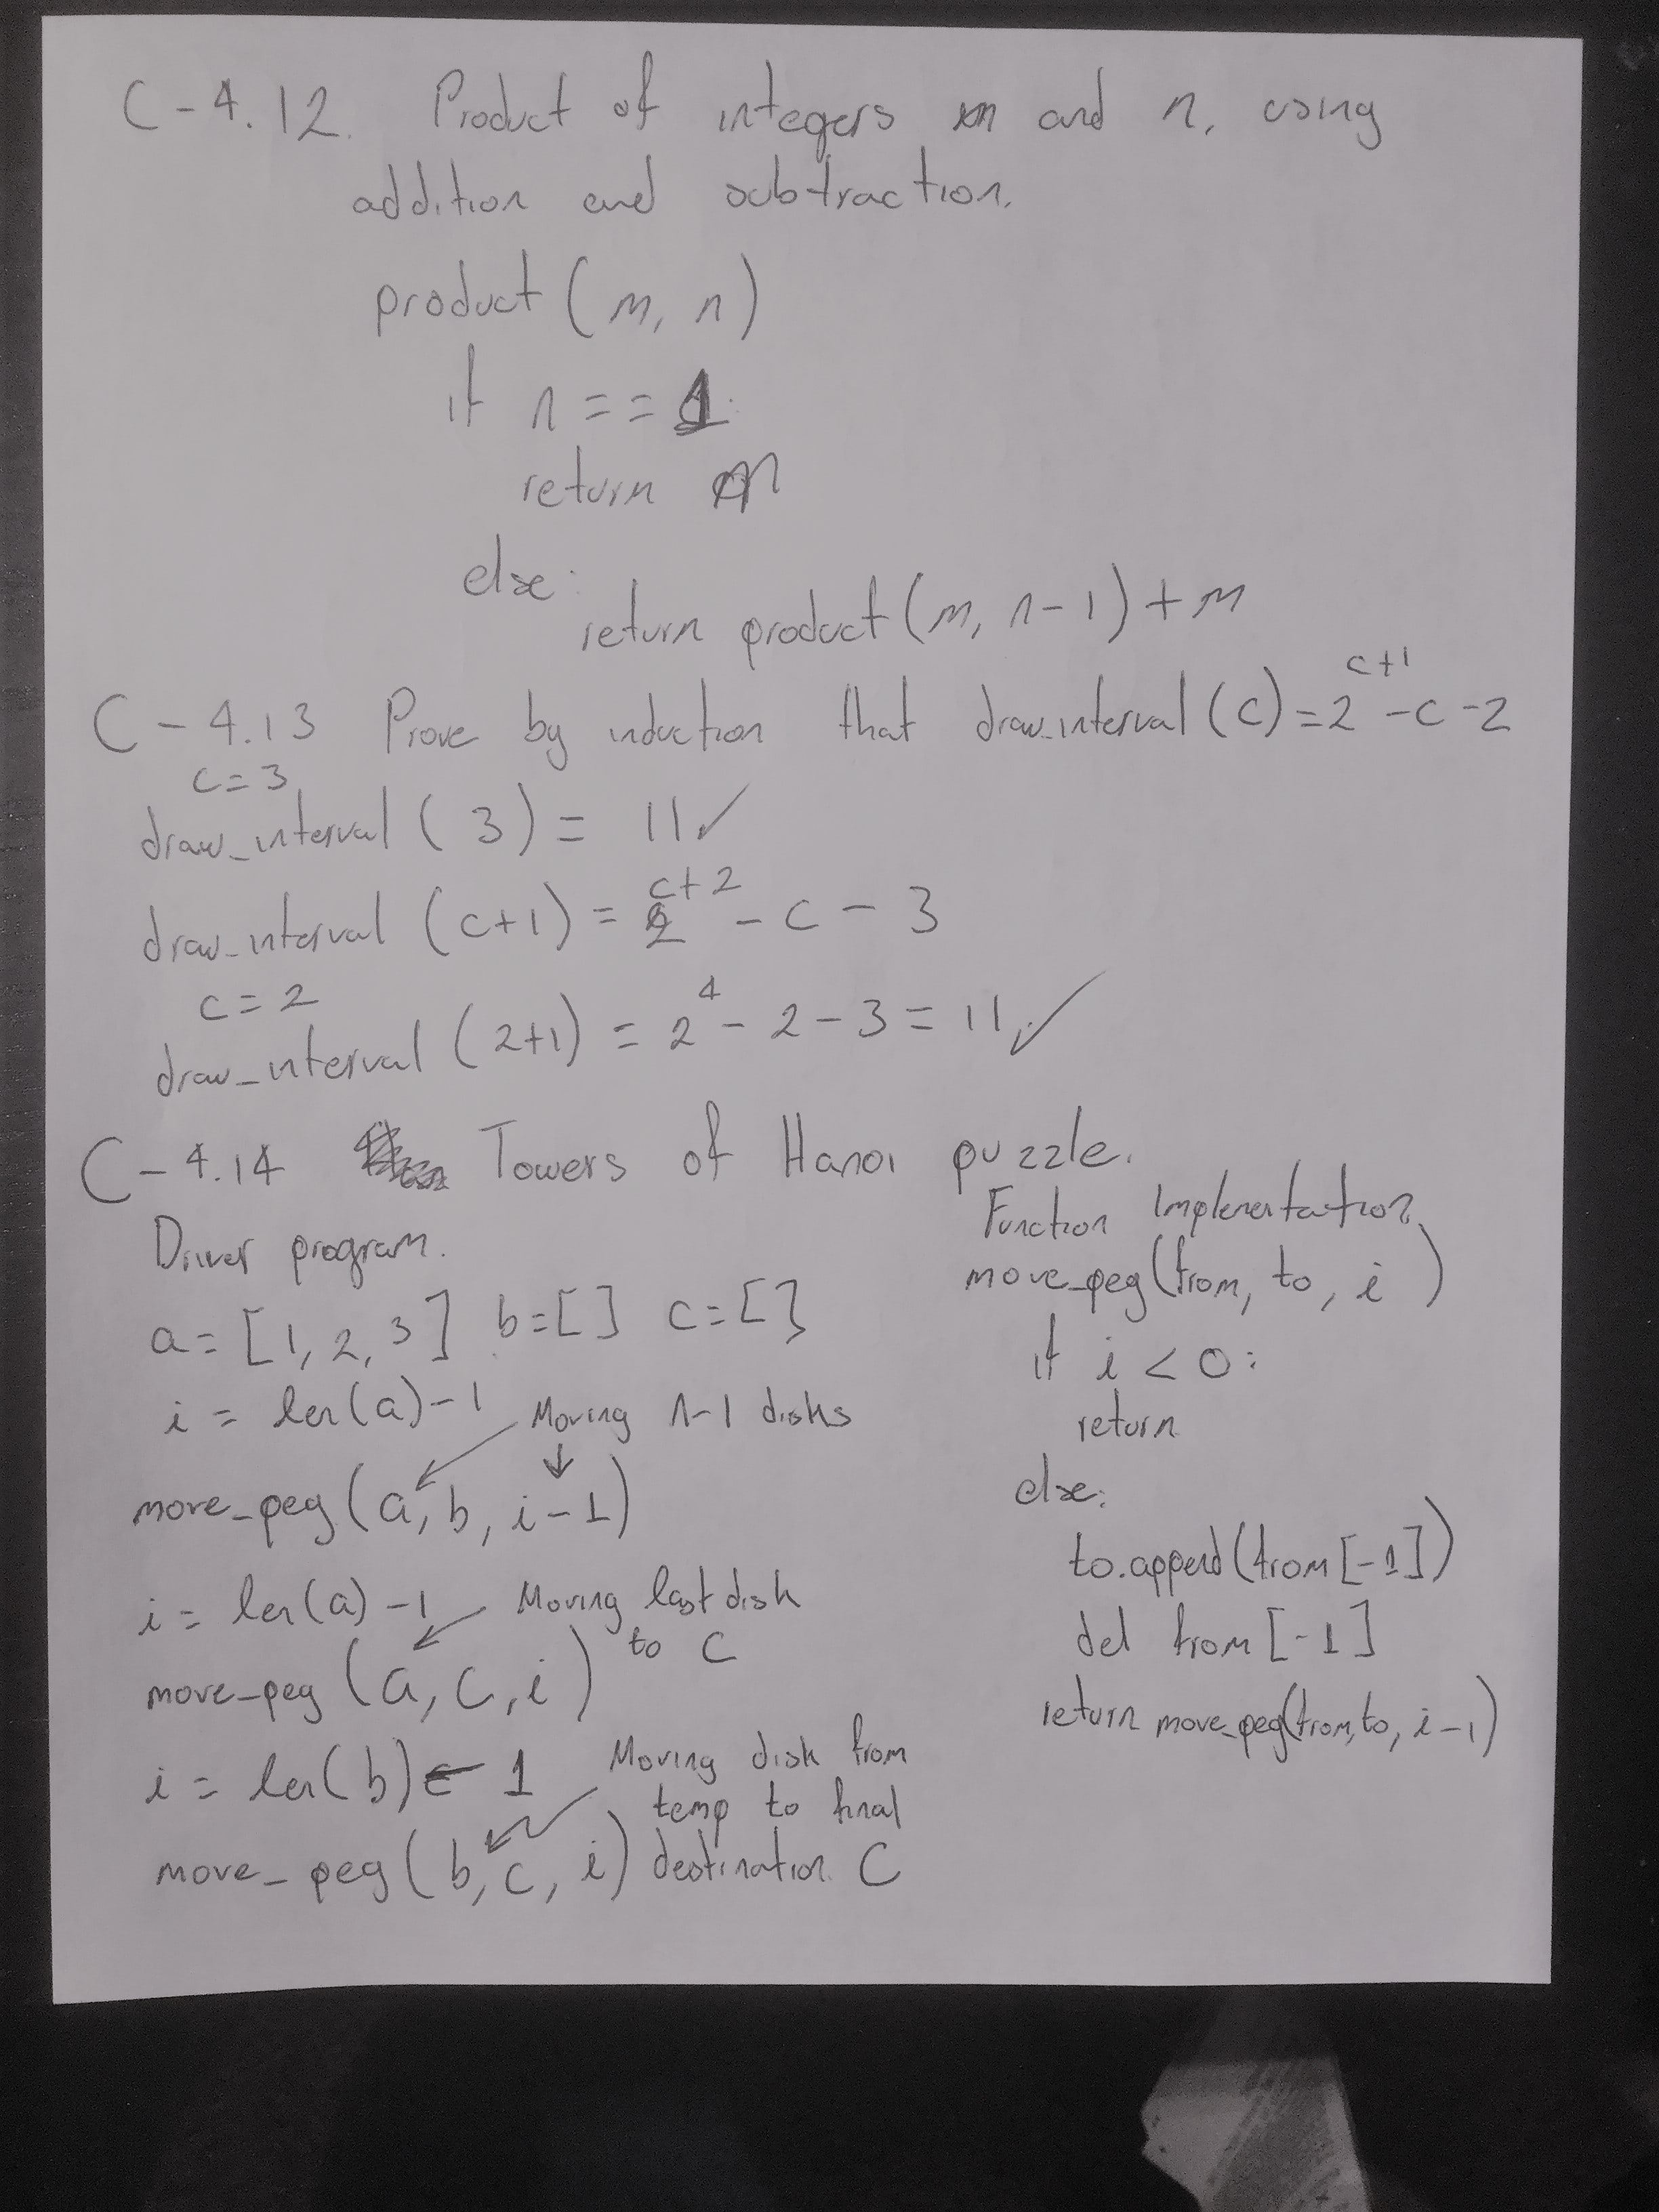 C-4.12. Product of integers m and n, using
addition and subtraction.
product (m, n)
if n == 1:
return m
else:
return product(m, n-1) + m
C-4.13 Prove by induction that draw_interval(c) = 2^{c+1} - c - 2
c = 3
draw_interval (3) = 11 ✓
draw_interval (c+1) = 2^{c+2} - c - 3
c = 2
draw_interval (2+1) = 2^4 - 2 - 3 = 11 ✓
C-4.14 Towers of Hanoi puzzle.
Driver program.
a = [1, 2, 3] b = [] c = []
i = len(a)-1
Moving n-1 disks
move_peg(a, b, i-1)
i = len(a)-1
Moving last disk
to C
move_peg(a, c, i)
i = len(b) - 1
Moving disk from
temp to final
destination C
move_peg(b, c, i)
Function Implementation
move_peg(from, to, i)
if i < 0:
return
else:
to.append(from[-1])
del from[-1]
return move_peg(from, to, i-1)